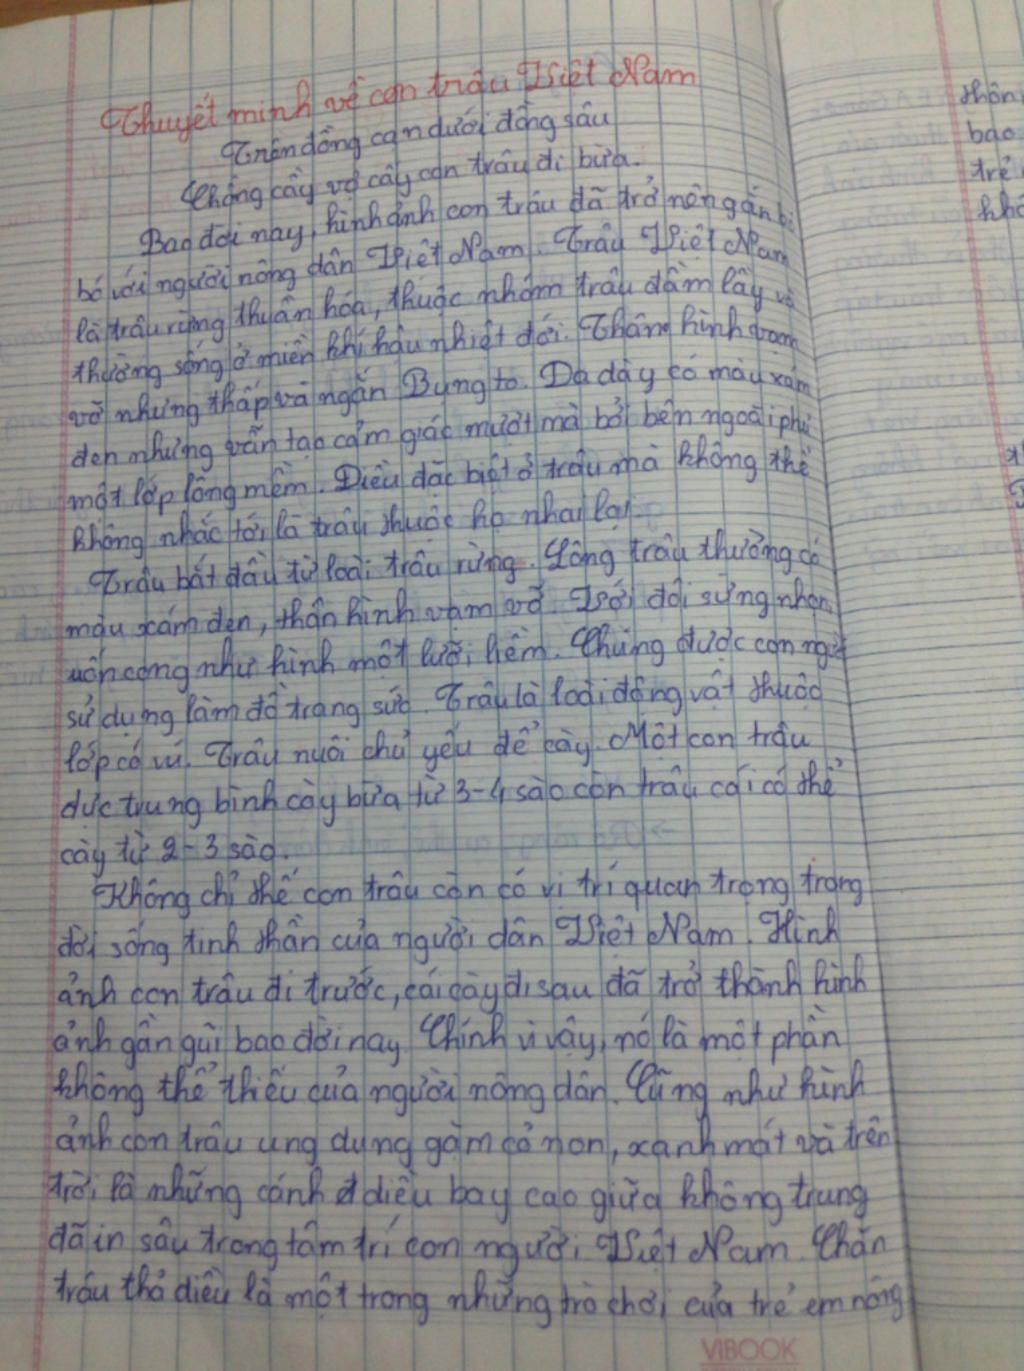 Thuyết minh về con trâu Việt Nam
Trên đồng cạn dưới đồng sâu
Chồng cầy vợ cấy con trâu đi bừa.
Bao đời nay, hình ảnh con trâu đã trở nên gắn bi
bó với người nông dân Việt Nam. Trâu Việt Nam
là trâu rừng thuần hóa, thuộc nhóm trâu đầm lầy và
thường sống ở miền khí hậu nhiệt đới. Thân hình vạm
vỡ nhưng thấp và ngắn Bụng to. Da dày có màu xám
đen nhưng vẫn tạo cảm giác mượt mà bởi bên ngoài phủ
một lớp lông mềm. Điều đặc biệt ở trâu mà không thể
không nhắc tới là trâu thuộc họ nhai lại.
Trâu bắt đầu từ loài trâu rừng. Lông trâu thường có
màu xám đen, thân hình vạm vỡ. Với đôi sừng nhọn
uốn cong như hình một lưỡi liềm. Chúng được con người
sử dụng làm đồ trang sức. Trâu là loài động vật thuộc
lớp có vú. Trâu nuôi chủ yếu để cày. Một con trâu
đực trung bình cày bừa từ 3-4 sào còn trâu cái có thể
cày từ 2-3 sào.
Không chỉ thế con trâu còn có vị trí quan trọng trong
đời sống tinh thần của người dân Việt Nam. Hình
ảnh con trâu đi trước, cái cày đi sau đã trở thành hình
ảnh gần gũi bao đời nay. Chính vì vậy, nó là một phần
không thể thiếu của người nông dân. Cũng như hình
ảnh con trâu ung dung gặm cỏ non, xanh mát và trên
trời là những cánh diều bay cao giữa không trung
đã in sâu trong tâm trí con người Việt Nam. Chăn
trâu thả diều là một trong những trò chơi của trẻ em nông
VIBOOK
thôn
bao
trẻ